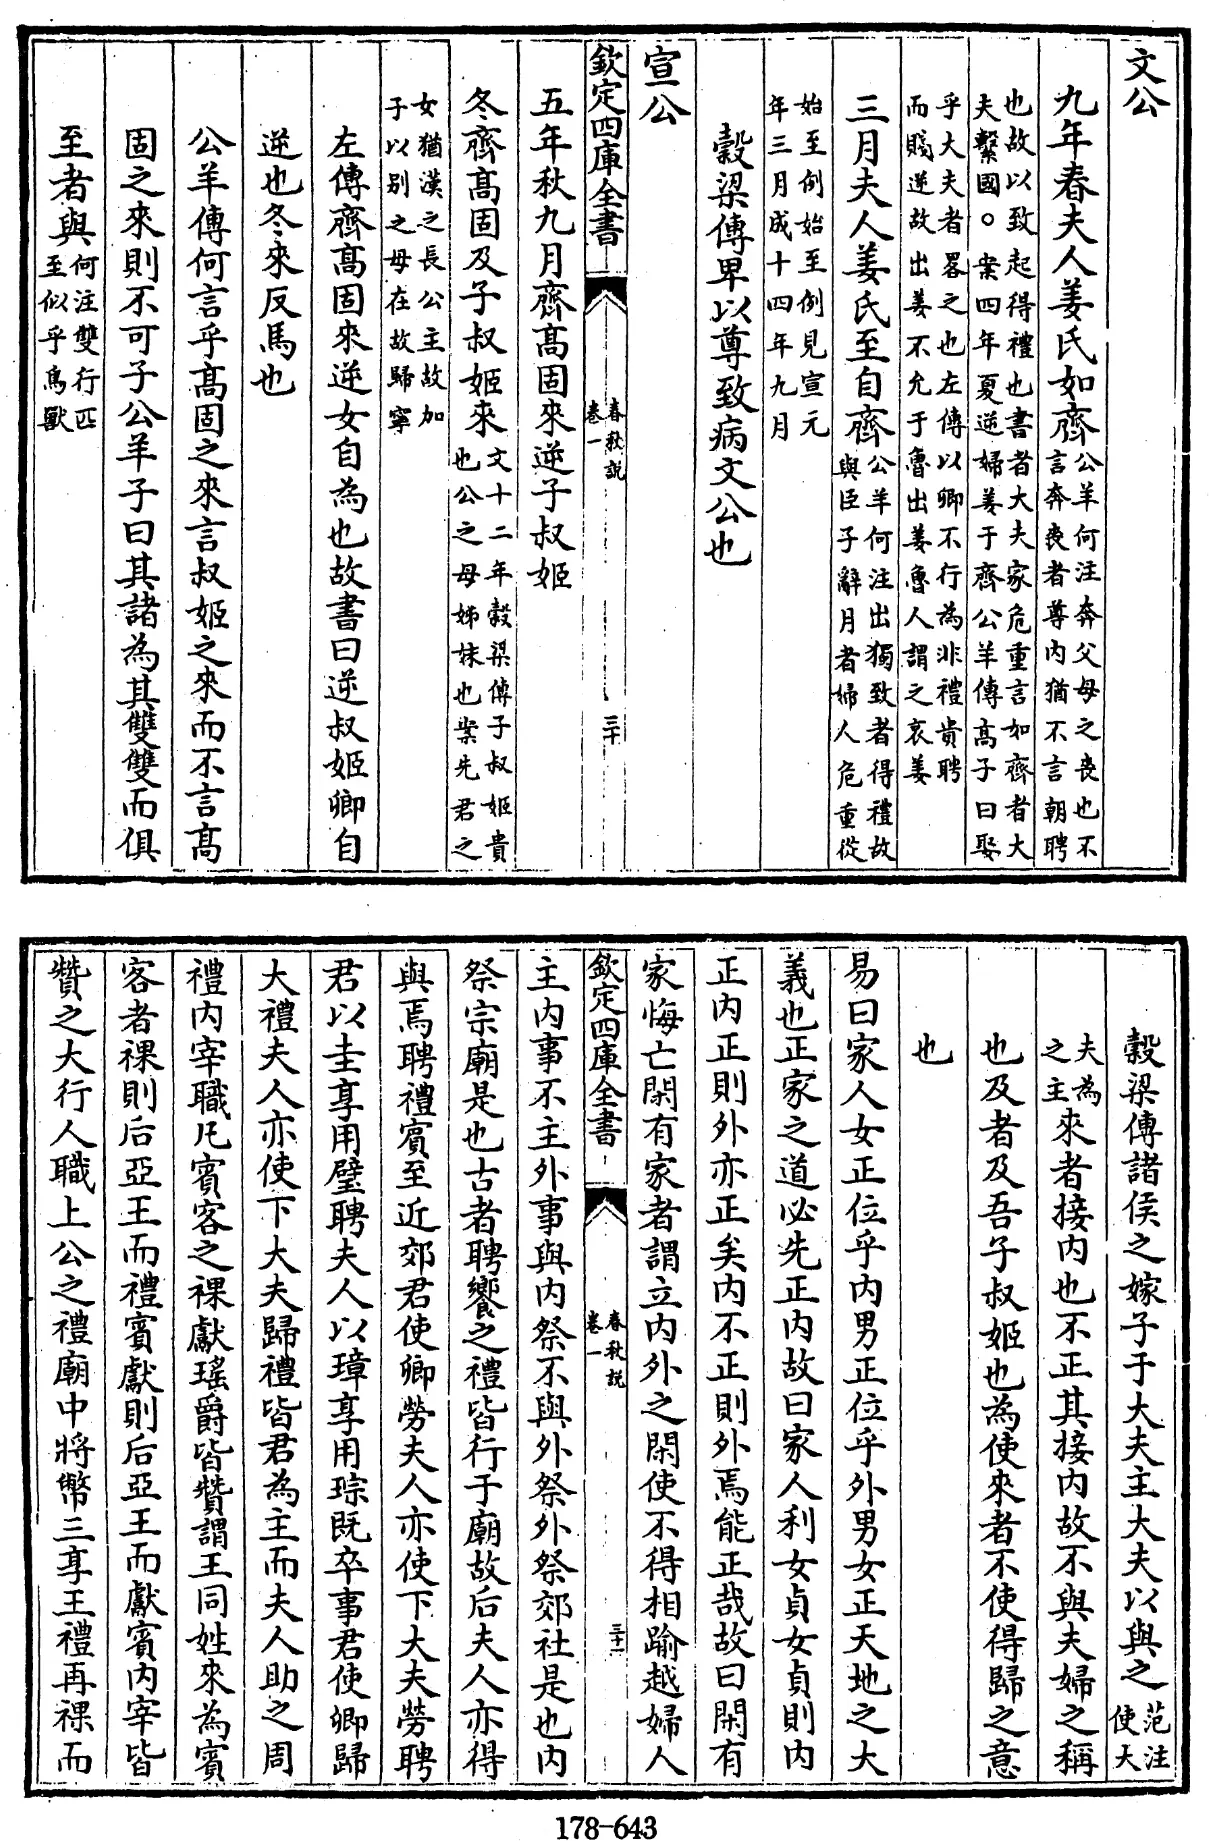 文公
九年春夫人姜氏如齊公羊何注奔父母之喪也不言奔喪者尊内猶不言朝聘
也故以致起得禮也書者大夫家危重言如齊者大夫繫國○案四年夏逆婦姜于齊公羊傳髙子曰娶
乎大夫者畧之也左傳以卿不行為非禮貴聘而賤逆故出姜不允于魯出姜魯人謂之哀姜
三月夫人姜氏至自齊公羊何注出獨致者得禮故與臣子辭月者婦人危重從
始至例始至例見宣元年三月成十四年九月
穀梁傳卑以尊致病文公也
宣公
欽定四庫全書 春秋説 卷一 三十
五年秋九月齊髙固來逆子叔姬
冬齊髙固及子叔姬來文十二年穀梁傳子叔姬貴也公之母姊妹也案先君之
女猶漢之長公主故加子以别之母在故歸寧
左傳齊髙固來逆女自為也故書曰逆叔姬卿自
逆也冬來反馬也
公羊傳何言乎髙固之來言叔姬之來而不言髙
固之來則不可子公羊子曰其諸為其雙雙而俱
至者與何注雙行匹至似乎鳥獸
穀梁傳諸侯之嫁子于大夫主大夫以與之范注使大
夫為之主來者接内也不正其接内故不與夫婦之稱
也及者及吾子叔姬也為使來者不使得歸之意
也
易曰家人女正位乎内男正位乎外男女正天地之大
義也正家之道必先正内故曰家人利女貞女貞則内
正内正則外亦正矣内不正則外焉能正哉故曰閑有
家悔亡閑有家者謂立内外之閑使不得相踰越婦人
欽定四庫全書 春秋説 卷一 三十一
主内事不主外事與内祭不與外祭外祭郊社是也内
祭宗廟是也古者聘饗之禮皆行于廟故后夫人亦得
與焉聘禮賓至近郊君使卿勞夫人亦使下大夫勞聘
君以圭享用璧聘夫人以璋享用琮既卒事君使卿歸
大禮夫人亦使下大夫歸禮皆君為主而夫人助之周
禮内宰職凡賓客之祼獻瑤爵皆贊謂王同姓來為賓
客者祼則后亞王而禮賓獻則后亞王而獻賓内宰皆
贊之大行人職上公之禮廟中將幣三享王禮再祼而
178-643